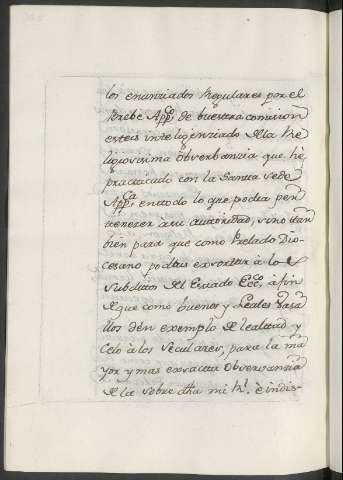 los enunziados Regulares por el
Brebe App.co de buestra comision
esteis inteligenziado de la Re
ligiosisima observanzia que hé
practicado con la Santa Sede
App.ca en todo lo que podia per
tenezer à su autoridad, sino tan
bien para que como Prelado Dio-
cesano, podais exsortar à los
subditos del Estado Ecc.co, à fin
de que como buenos y Leales Vasa
llos dén exemplo de lealtad y
Celo à los seculares, para la ma
yor y mas exsacta Observanzia
de la sobre dha mi Rl. é indis-